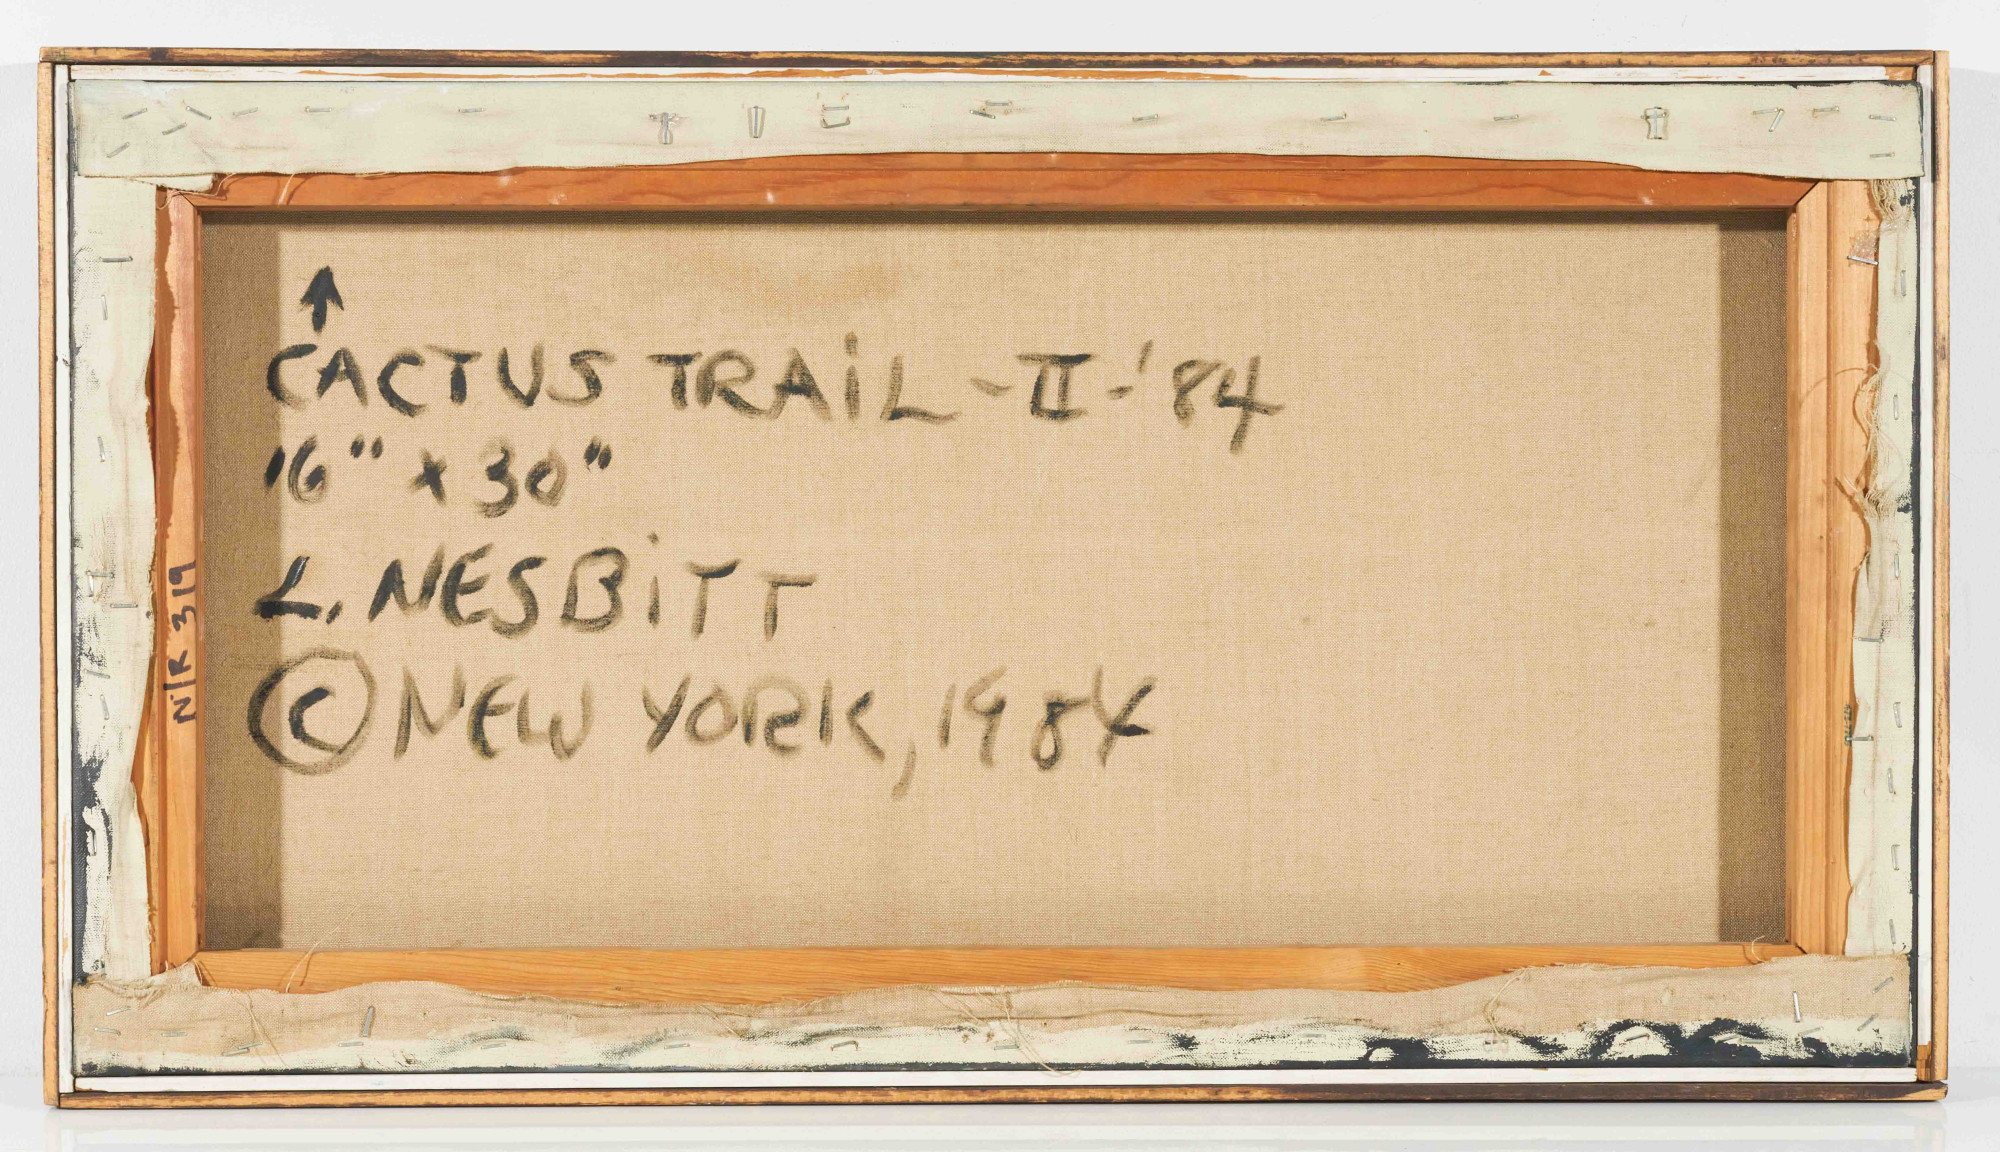 ↑
CACTUS TRAiL - II - '84
16" x 30"
L. NESBiTT
© NEW YORK, 1984
N/R 319